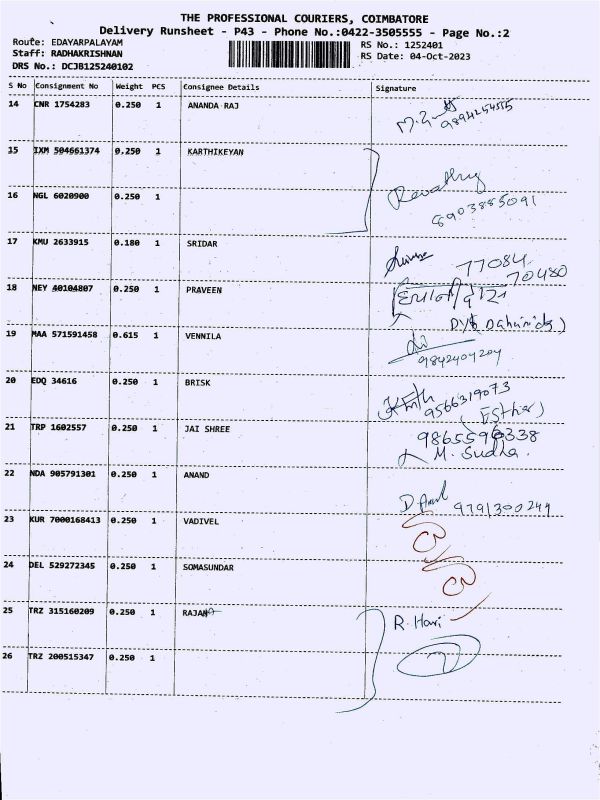 THE PROFESSIONAL COURIERS, COIMBATORE
Delivery Runsheet - P43 - Phone No.:0422-3505555 - Page No.:2
Route: EDAYARPALAYAM
Staff: RADHAKRISHNAN
DRS No.: DCJB125240102
RS No.: 1252401
RS Date: 04-Oct-2023
S No Consignment No Weight PCS Consignee Details Signature
14 CNR 1754283 0.250 1 ANANDA RAJ
9894254515
15 IXM 504661374 0.250 1 KARTHIKEYAN
Revathy
16 NGL 6020900 0.250 1
8903885091
17 KMU 2633915 0.180 1 SRIDAR
77084
70480
18 NEY 40104807 0.250 1 PRAVEEN
19 MAA 571591458 0.615 1 VENNILA
9842404204
20 EDQ 34616 0.250 1 BRISK
9566319073
(Esther)
21 TRP 1602557 0.250 1 JAI SHREE
M. Sudha.
22 NDA 905791301 0.250 1 ANAND
9791300249
23 KUR 7000168413 0.250 1 VADIVEL
24 DEL 529272345 0.250 1 SOMASUNDAR
25 TRZ 315160209 0.250 1 RAJAN
R. Hari
26 TRZ 200515347 0.250 1